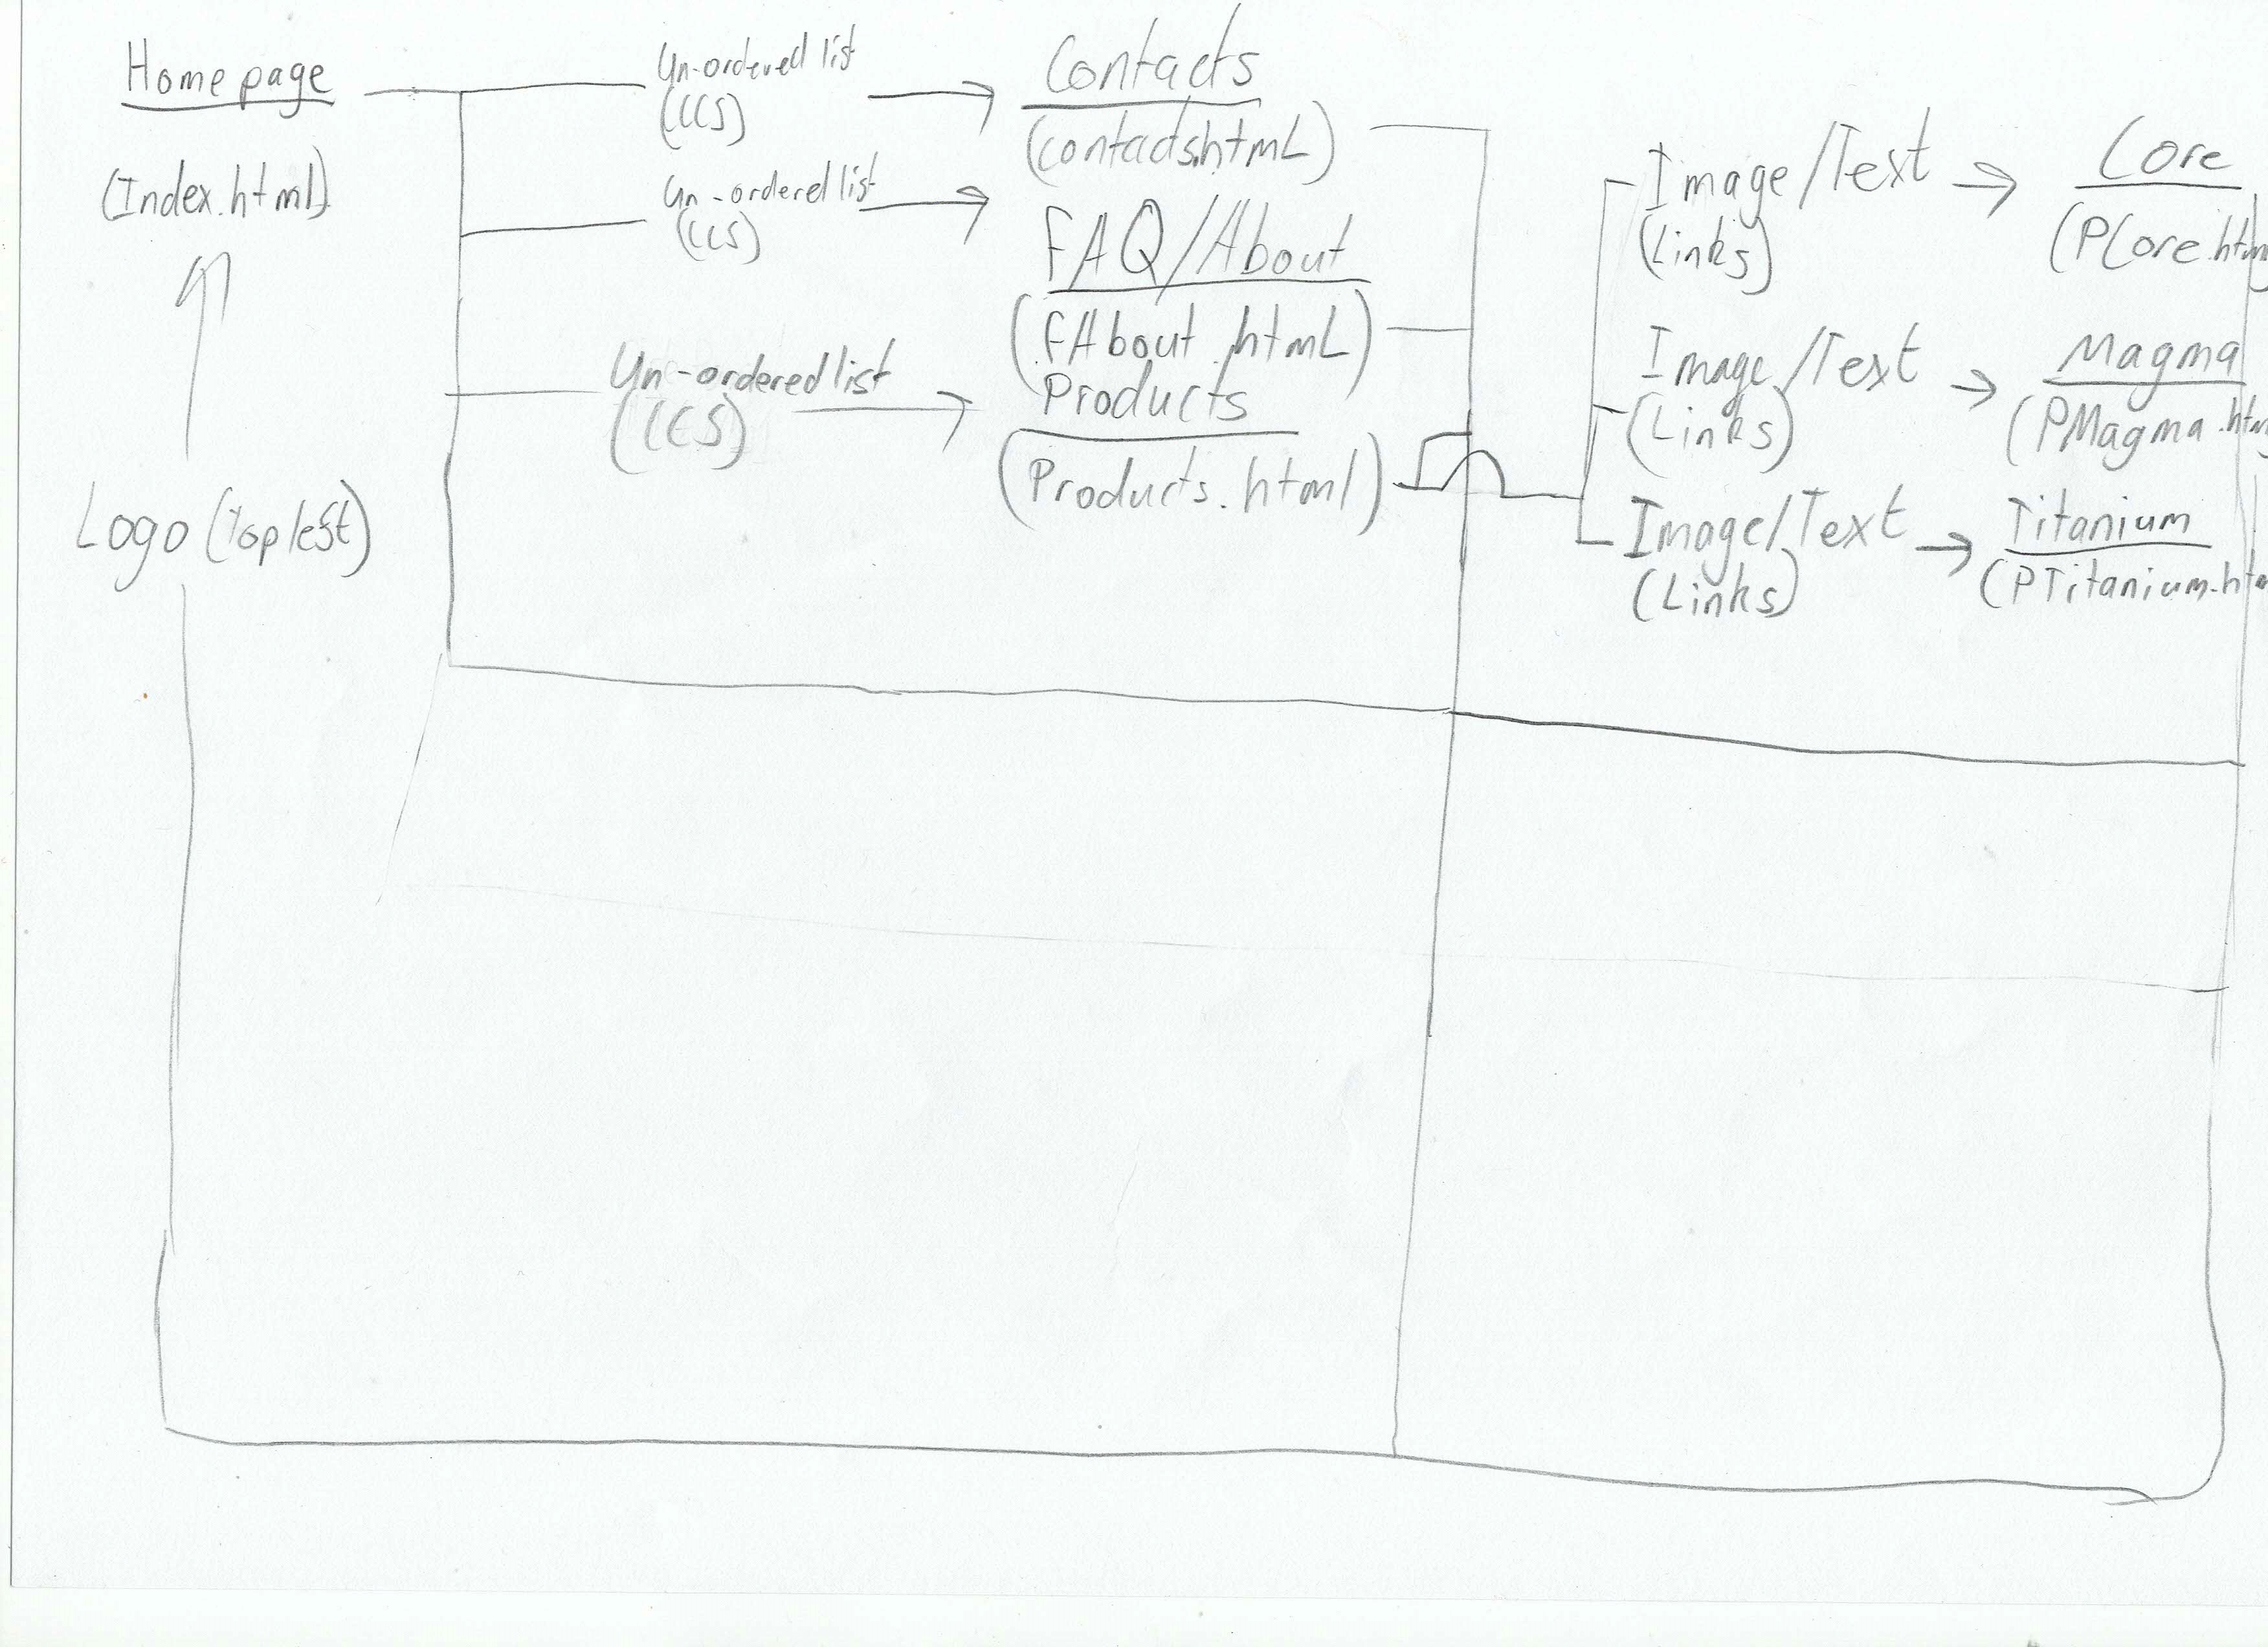 Home page
(Index.html)
Logo (top left)
Un-ordered list
(CCS)
Un-ordered list
(CCS)
Un-ordered list
(CCS)
Contacts
(contacts.html)
FAQ/About
(FAbout.html)
Products
(Products.html)
Image/Text
(Links)
Image/Text
(Links)
Image/Text
(Links)
Core
(PCore.htm
Magma
(PMagma.htm
Titanium
(PTitanium.htm